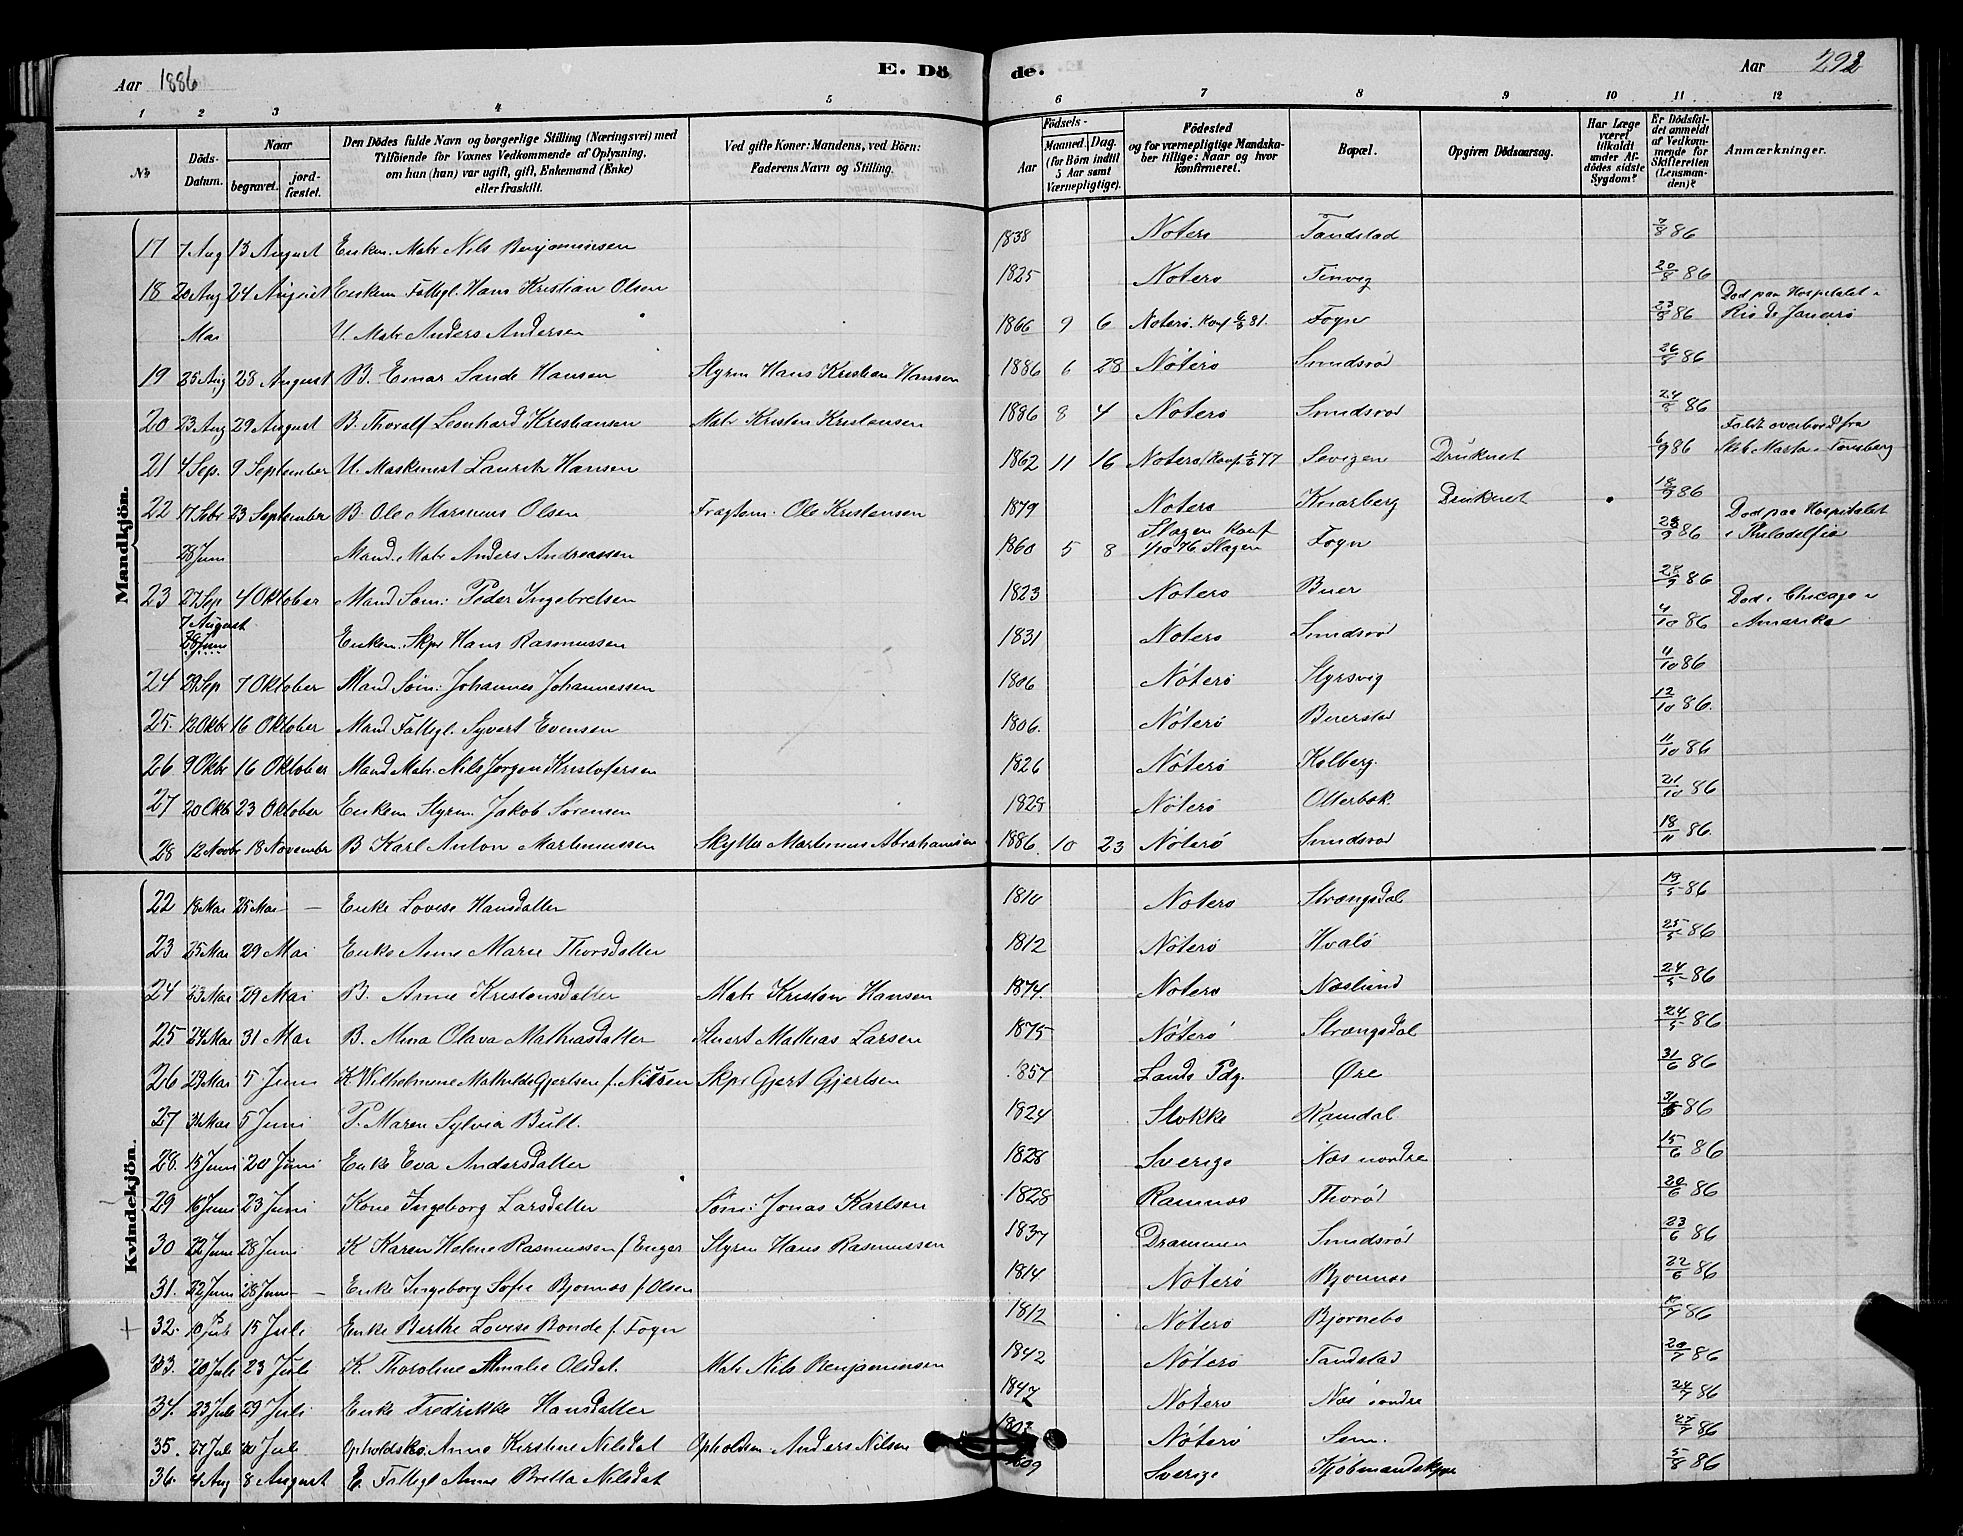 Aar 1886
E. Dö de.
Aar 292
1 2 3 4 5 6 7 8 9 10 11 12
№
Döds-Datum.
Naar
begravet.
jord-fæstet.
Den Dödes fulde Navn og borgerlige Stilling (Næringsvei) med
Tilföiende for Voxnes Vedkommende af Oplysning,
om han (hun) var ugift, gift, Enkemand (Enke)
eller fraskilt.
Ved gifte Koner: Mandens, ved Börn:
Faderens Navn og Stilling.
Födsels-
Aar
Maaned, Dag.
(for Börn indtil
5 Aar samt
Værnepligtige).
Födested
og for værnepligtige Mandska-
ber tillige: Naar og hvor
konfirmeret.
Bopæl.
Opgiven Dödsaarsag.
Har Læge
været
tilkaldt
under Af-
dödes sidste
Sygdom?
Er Dödsfal-
det anmeldt
af Vedkom-
mende for
Skifteretten
(Lensman-
den)?
Anmærkninger.
Mandkjön.
17 7 Aug 13 August Enkem. Matr Nils Benjaminsen 1838 Noterø Tandstad 7/8 86
18 20 Aug 24 August Enkem Fattigl. Hans Kristian Olsen 1825 Noterø Tinvig 20/8 86
Mai U. Matr Anders Andersen 1866 9 6 Noterø. Konf 81. Fogn 23/8 86 Død paa Hospitalet i Rio de Janeiro
19 25 Aug 28 August B. Einar Sande Hansen Styrm Hans Kristian Hansen 1886 6 28 Nøterø Smidsrød 26/8 86
20 23 Aug 29 August B. Thoralf Leonhard Kristiansen Matr Kristen Kristensen 1886 8 4 Nøterø Smidsrød 24/8 86
21 4 Sep. 9 September U. Maskinist Lauritz Hansen 1862 11 16 Noterø Konf. 77 Sevigen Druknet 6/9 86 Faldt overbord fra Skib Marta i Tønsberg
22 17 Sebr 23 September B. Ole Marinius Olsen Fragtem: Ole Kristensen 1879 Noterø Knarberg Druknet 18/9 86
28 Juni Mand. Matr Anders Andreassen 1860 5 8 Slagen Konf 1/10 76 Slagen Fogn 23/9 86 Død paa Hospitalet i Philadelfia
23 27 Sep 4 Oktober Mand Søm: Peder Ingebretsen 1823 Noterø Buer 28/9 86
7 August 28 Juni Enkem. Skpr Hans Rasmussen 1831 Noterø Smidsrød 4/10 86 Død i Chicago i Amerika
24 29 Sep 7 Oktober Mand Søm: Johannes Johannessen 1806 Nøterø Styrsvig 11/10 86
25. 12 Oktbr 16 Oktober Mand Fattigl. Syvert Evensen 1806. Nøterø Buerstad 12/10 86.
26 9 Oktbr 16 Oktober Mand Matr. Nils Jørgen Kristofersen 1826 Nøterø Kolberg. 11/10 86
27 20 Oktb 23 Oktober Enkem Styrm. Jakob Sørensen 1828 Nøterø Otterbæk. 21/10 86
28 12 Novbr 18 November B Karl Anton Martinussen Skytter Martinus Abrahamsen 1886. 10 23 Nøterø Smidsrød 18/11 86.
Kvindekjön.
22 18 Mai 25 Mai – Enke Lovise Hansdatter 1810 Noterø Strængsdal 19/5 86
23 25 Mai 29 Mai Enke Anne Marie Thorsdatter 1812 Nøterø Hvalø 25/5 86
24 23 Mai 29 Mai B. Anne Kristensdatter Matr Kristen Hansen 1874. Noterø Næslund 24/5 86
25 24 Mai 31 Mai B. Alma Olava Mathiasdatter Stuert Mathias Larsen 1875 Nøterø Strængsdal 24/5 86
26 29 Mai 5 Juni K Wilhelmine Mathilde Gjertsen f. Nilsen Skpr Gjert Gjertsen 1857 Lands Pdg. Øre 31/6 86
27 31 Mai 5 Juni P. Maren Sylvia Bull. 1824 Stokke Ramdal 86
28. 15 Juni 20 Juni Enke Eva Andersdatter 1828 Sverige Næs nordre 15/6 86
29 16 Juni 23 Juni Kone Ingeborg Larsdatter Søm: Jonas Karlsen 1828 Ramnæs Thorød 20/6 86
30 22 Juni 28 Juni K Karen Helene Rasmussen f Enger Styrm Hans Rasmussen 1837 Drammen Smidsrød 23/6 86
31. 22 Juni 28 Juni – Enke Ingeborg Sofie Bjonnes f. Olsen 1814 Nøterø Bjonnes 22/6 86
+ 32. 10 Juli 15 Juli Enke Berthe Lovise Bonde f. Fogn 1812 Nøterø Bjornebo 86
33. 20 Juli 23 Juli K. Thoroline Amalie Olsdat. Matr Nils Benjaminsen 1842 Nøterø Tandstad 20/7 86
34. 23 Juli 29 Juli Enke Fredrikke Hansdatter 1847 Noterø Næs søndre 24/7 86
35. 27 Juli 30 Juli Opholdsko. Anne Kirstine Nilsdat Opholdsm. Anders Nilsen Nøterø Sem. 27/7 86
36. 4 Aug 8 August E. Fattigl Anne Britta Nilsdat Sverige Kjøbmandskjær 5/8 86